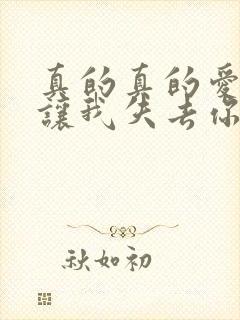 真的真的愛
讓我失去你
秋如初